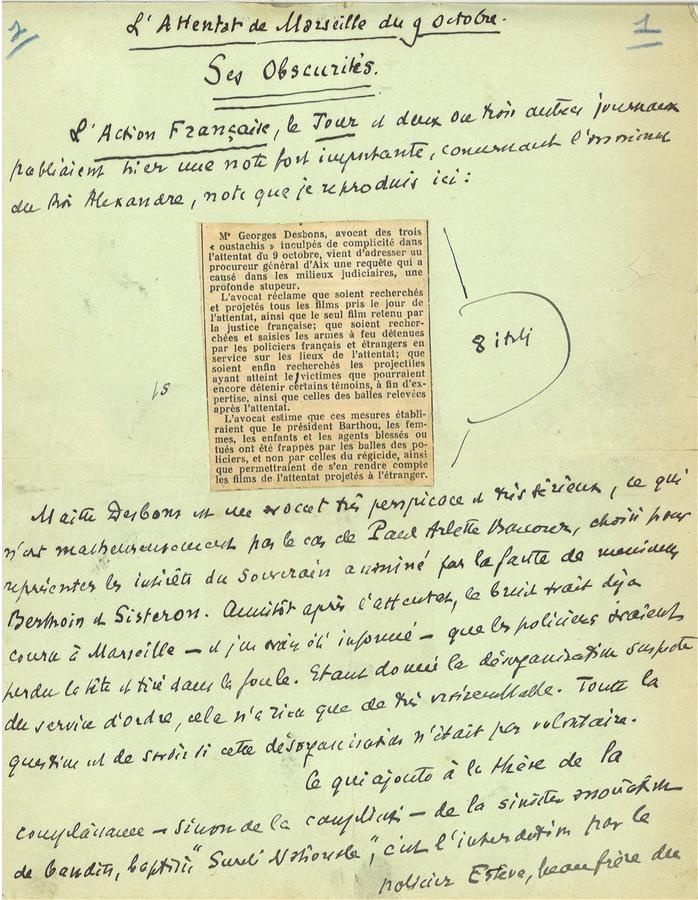 1
L'Attentat de Marseille du 9 octobre.
Ses Obscurités.
L'Action Française, le Jour et deux ou trois autres journaux
publiaient hier une note fort importante, concernant l'assassinat
du Roi Alexandre, note que je reproduis ici :
Mᵉ Georges Desbons, avocat des trois
« oustachis » inculpés de complicité dans
l'attentat du 9 octobre, vient d'adresser au
procureur général d'Aix une requête qui a
causé dans les milieux judiciaires, une
profonde stupeur.
L'avocat réclame que soient recherchés
et projetés tous les films pris le jour de
l'attentat, ainsi que le seul film retenu par
la justice française; que soient recher-
chées et saisies les armes à feu détenues
par les policiers français et étrangers en
service sur les lieux de l'attentat; que
soient enfin recherchés les projectiles
ayant atteint le victimes que pourraient
encore détenir certains témoins, à fin d'ex-
pertise, ainsi que celles des balles relevées
après l'attentat.
L'avocat estime que ces mesures établi-
raient que le président Barthou, les fem-
mes, les enfants et les agents blessés ou
tués ont été frappés par les balles des po-
liciers, et non par celles du régicide, ainsi
que permettraient de s'en rendre compte
les films de l'attentat projetés à l'étranger.
8 itali
/s
Maître Desbons est un avocat très perspicace et très sérieux, ce qui
n'est malheureusement pas le cas de Paul Arlette Boncour, choisi pour
représenter les intérêts du Souverain assassiné par la faute de messieurs
Berthoin et Sisteron. Aussitôt après l'attentat, le bruit avait déjà
couru à Marseille – et j'en avais été informé – que les policiers avaient
perdu la tête et tiré dans la foule. Etant donné la désorganisation suspecte
du service d'ordre, cela n'a rien que de très vraisemblable. Toute la
question est de savoir si cette désorganisation n'était pas volontaire.
Ce qui ajoute à la thèse de la
complaisance – sinon de la complicité – de la sinistre association
de bandits, baptisée "Sureté Nationale", c'est l'interdiction par le
policier Estève, beau frère du